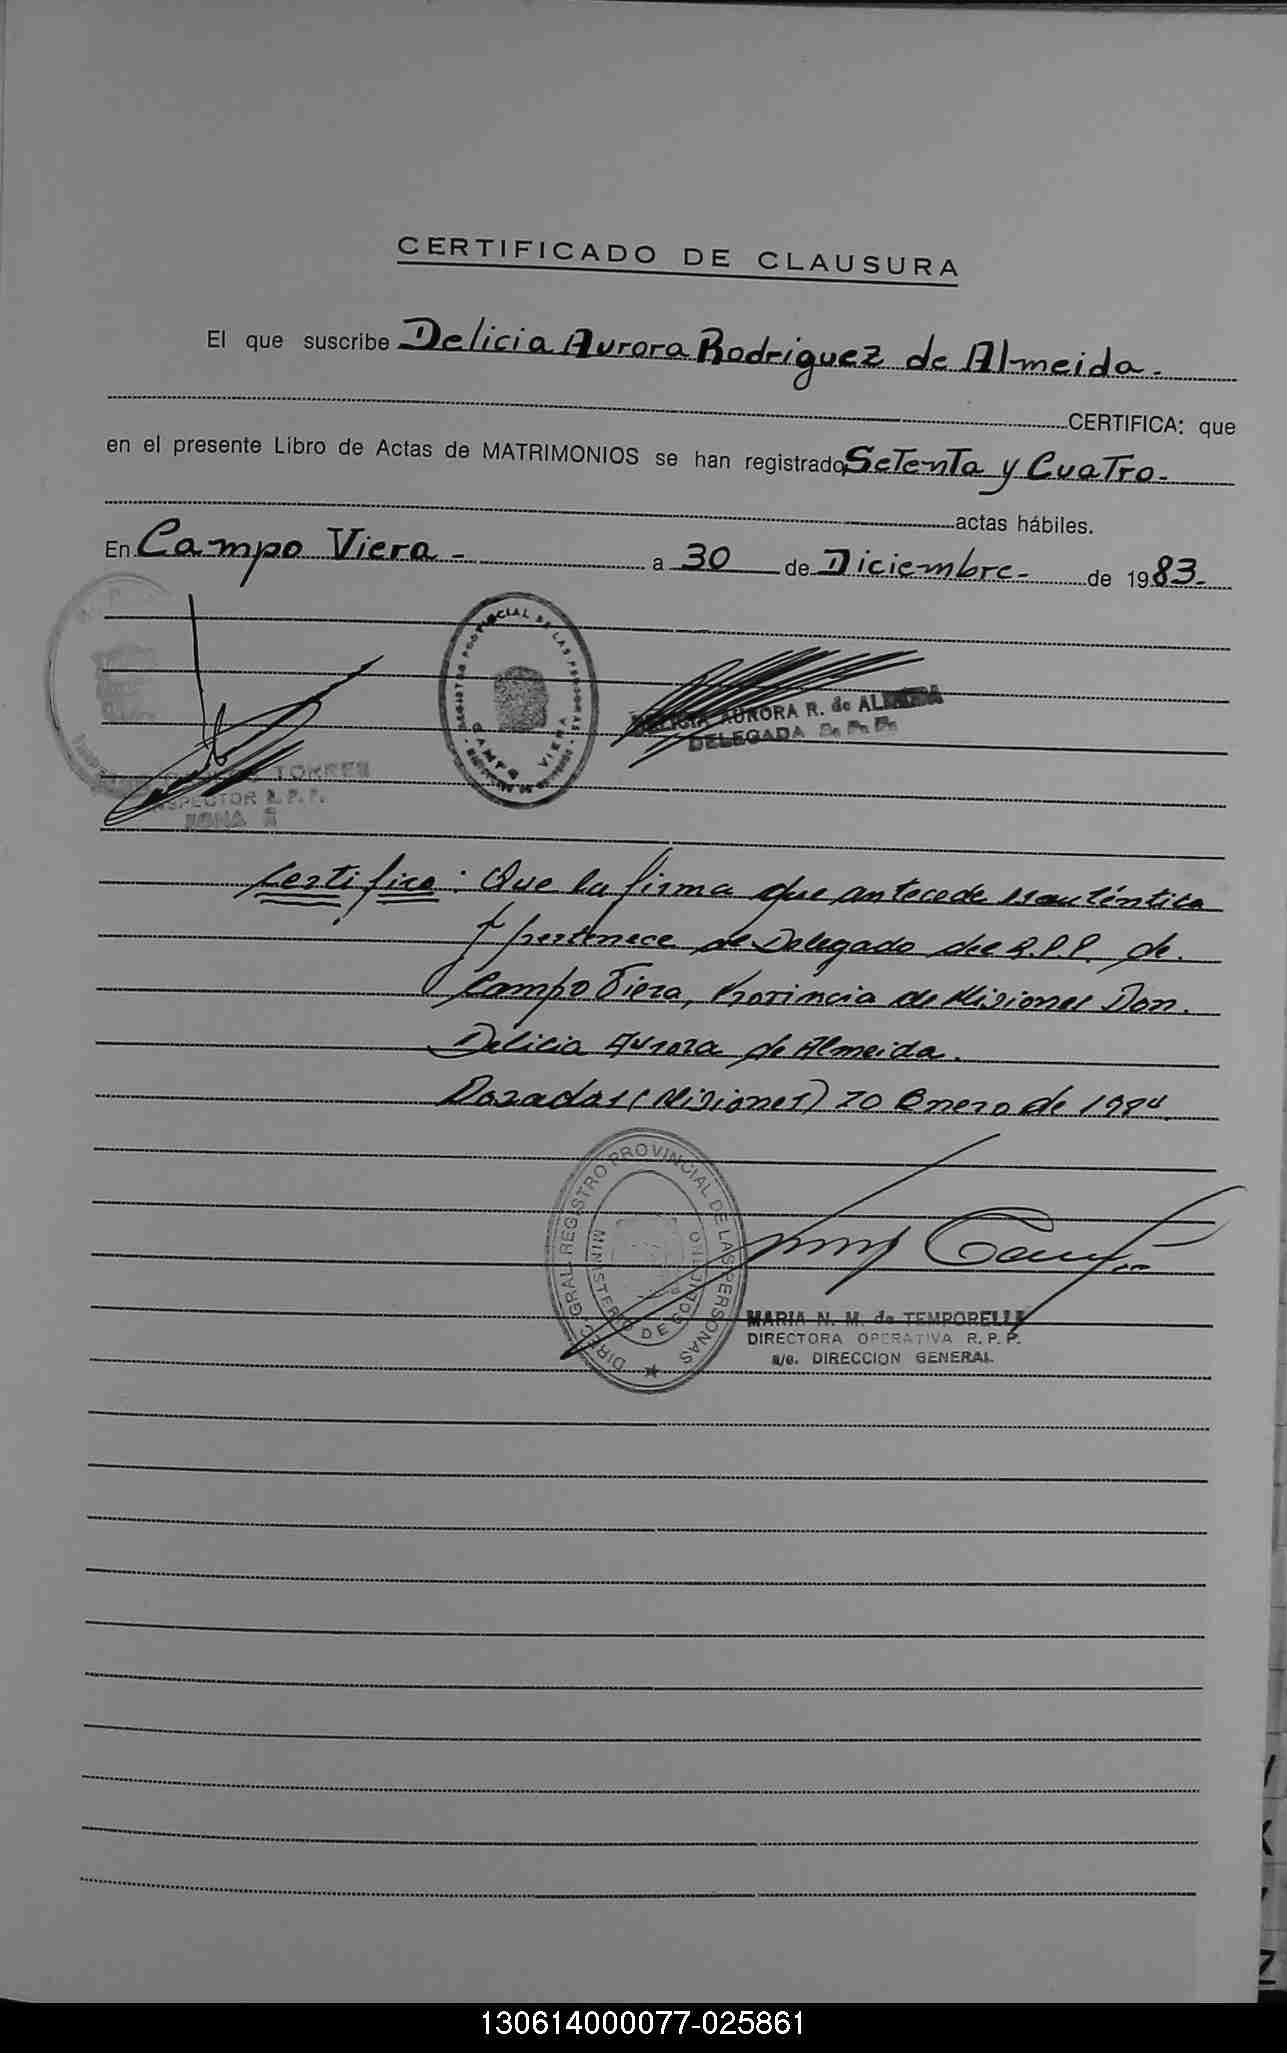 CERTIFICADO DE CLAUSURA
El que suscribe Delicia Aurora Rodriguez de Almeida.
CERTIFICA: que
en el presente Libro de Actas de MATRIMONIOS se han registrado, Setenta y Cuatro.
actas hábiles.
En Campo Viera - a 30 de Diciembre - de 1983.
REGISTRO PROVINCIAL DE LAS PERSONAS
CAMPO VIERA
DELICIA AURORA R. de ALMEIDA
DELEGADA R. P. P.
TORRES
INSPECTOR R. P. P.
ZONA
Certifico: Que la firma que antecede es auténtica
y pertenece al Delegado del R.P.P. de
Campo Viera, Provincia de Misiones Don.
Delicia Aurora de Almeida.
Posadas (Misiones) 20 Enero de 1984
DIREC. GRAL. REGISTRO PROVINCIAL DE LAS PERSONAS
MINISTERIO DE GOBIERNO
MARIA N. M. de TEMPORELLI
DIRECTORA OPERATIVA R. P. P.
a/c. DIRECCION GENERAL
130614000077-025861